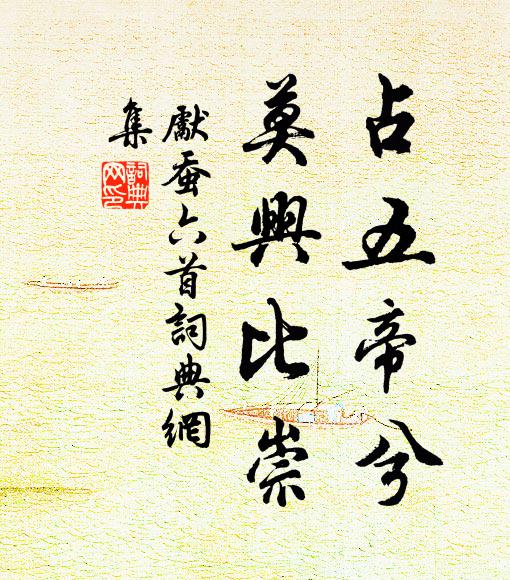 占五帝兮
莫興比崇
獻蚕六首詞典網
集
詞典
网印